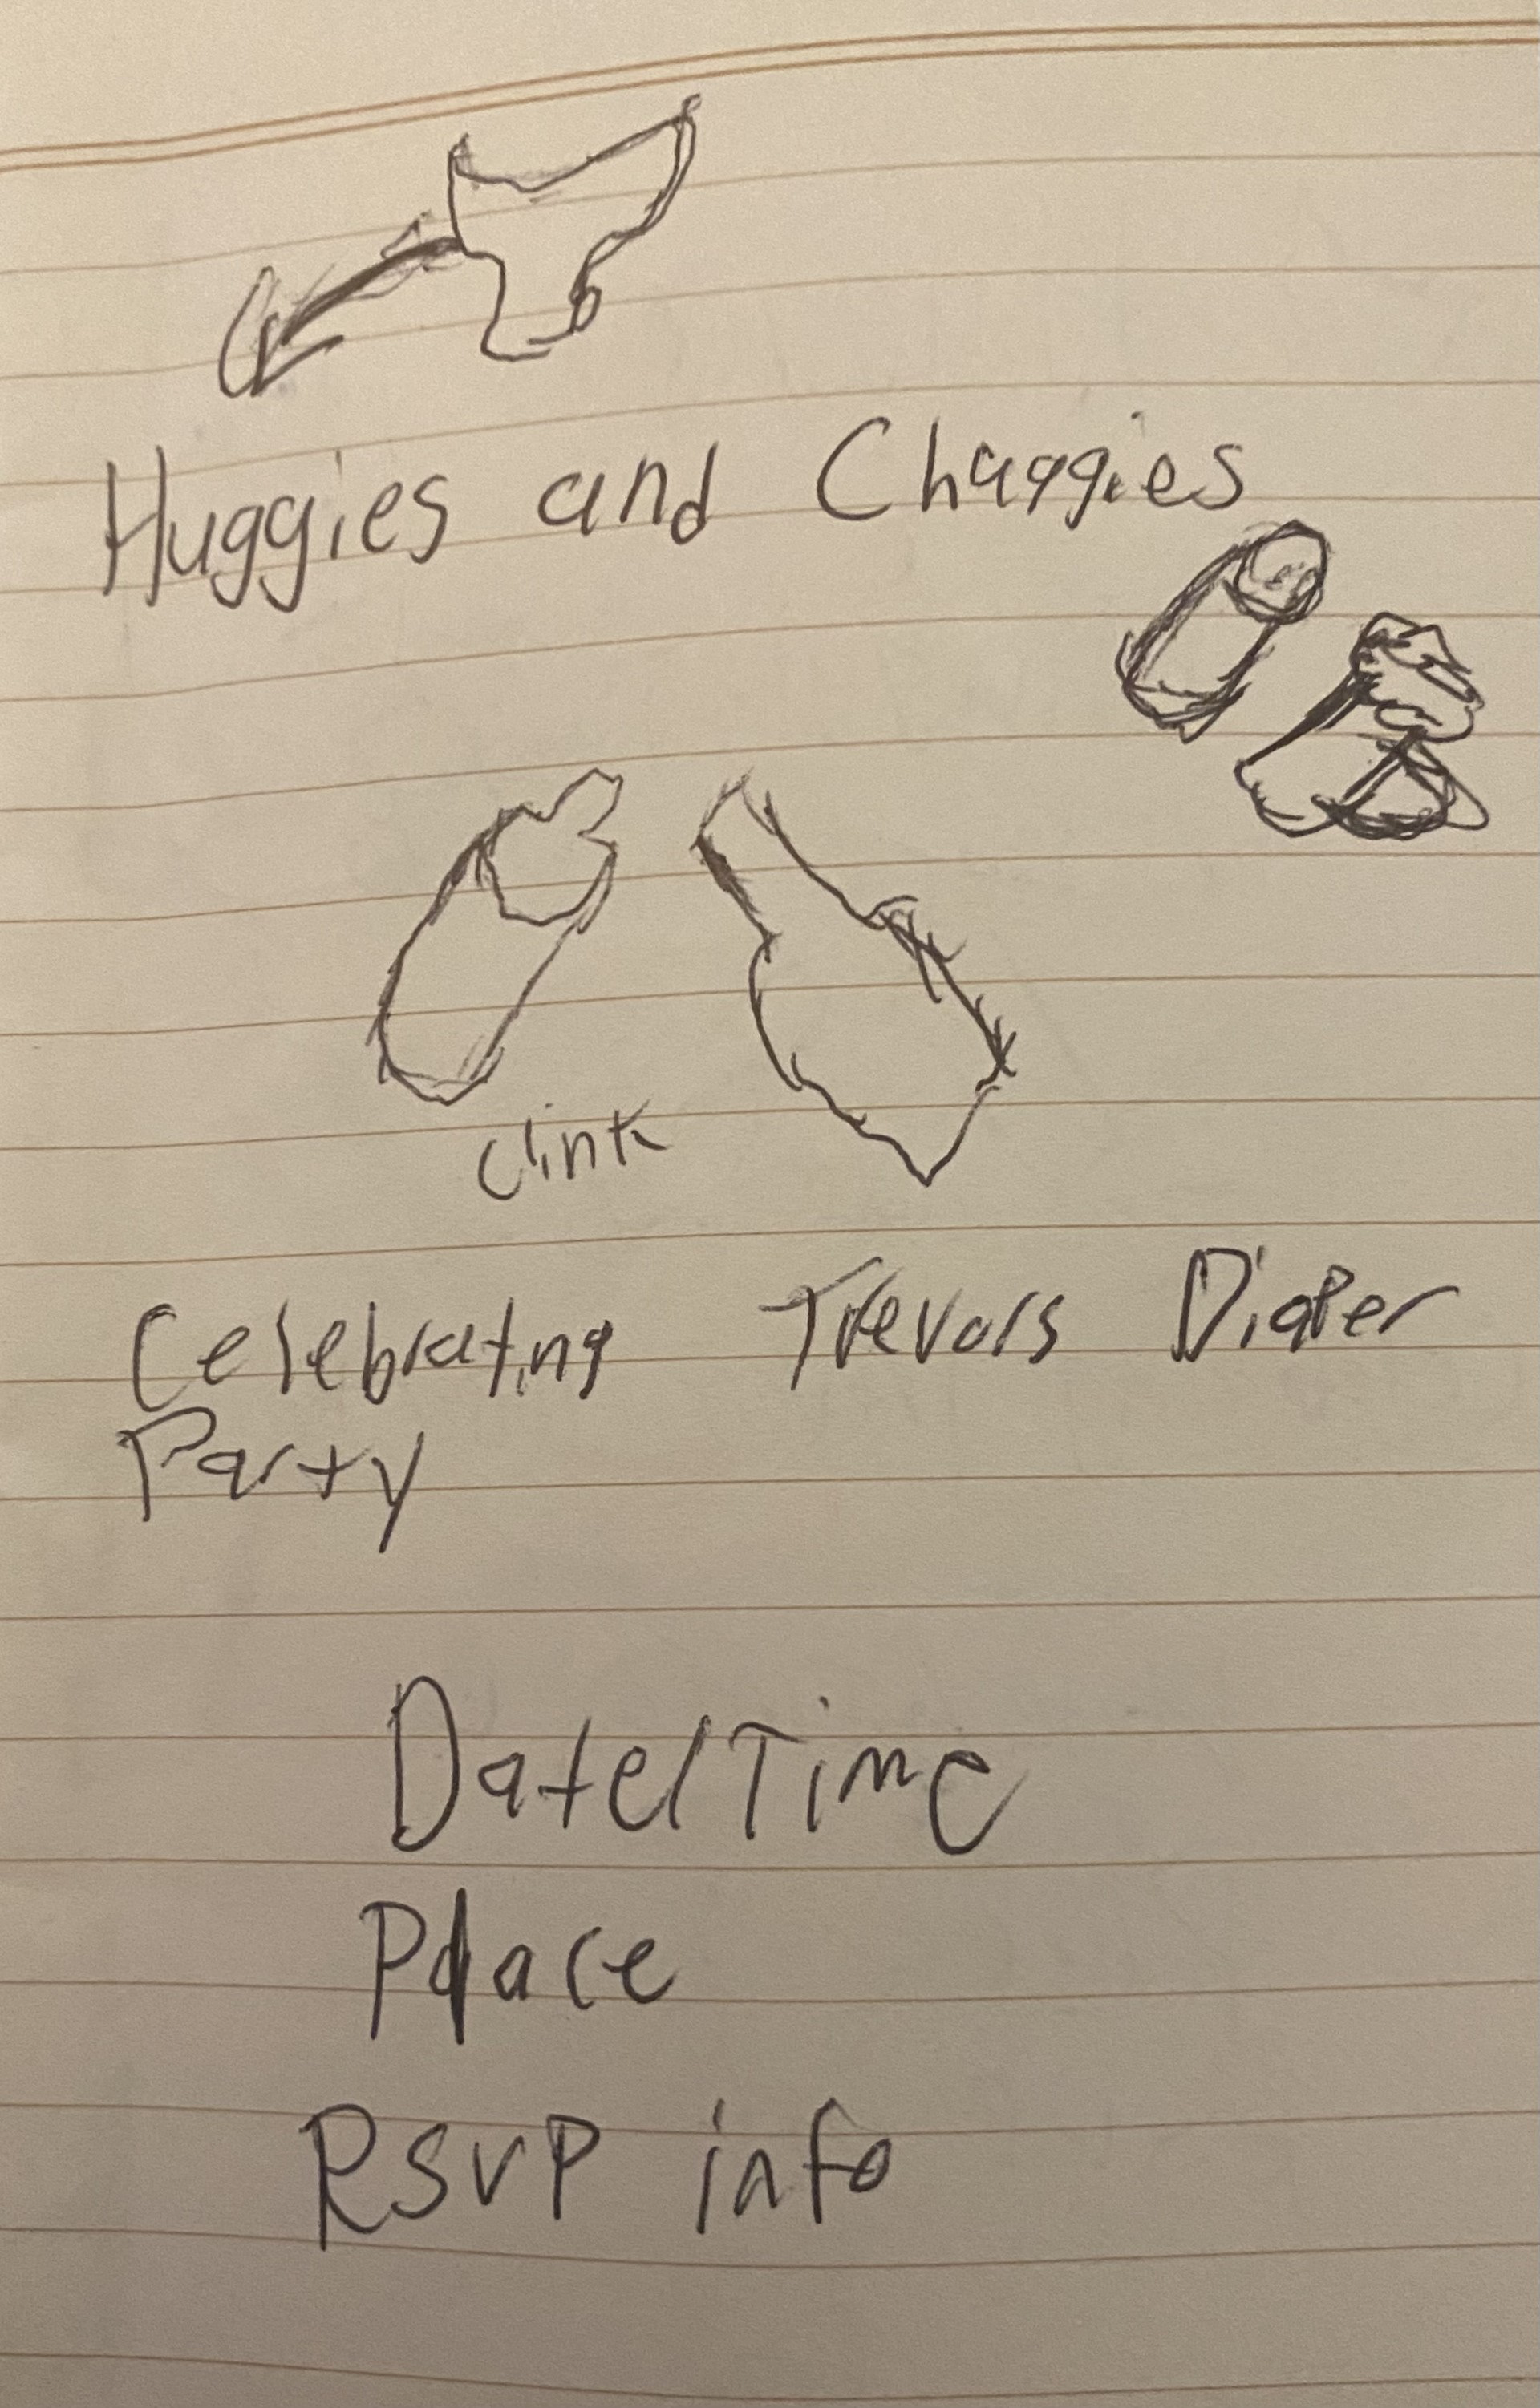 Huggies and Chuggies
Clink
Celebrating Trevors Diaper
Party
Date/Time
Place
RSVP info